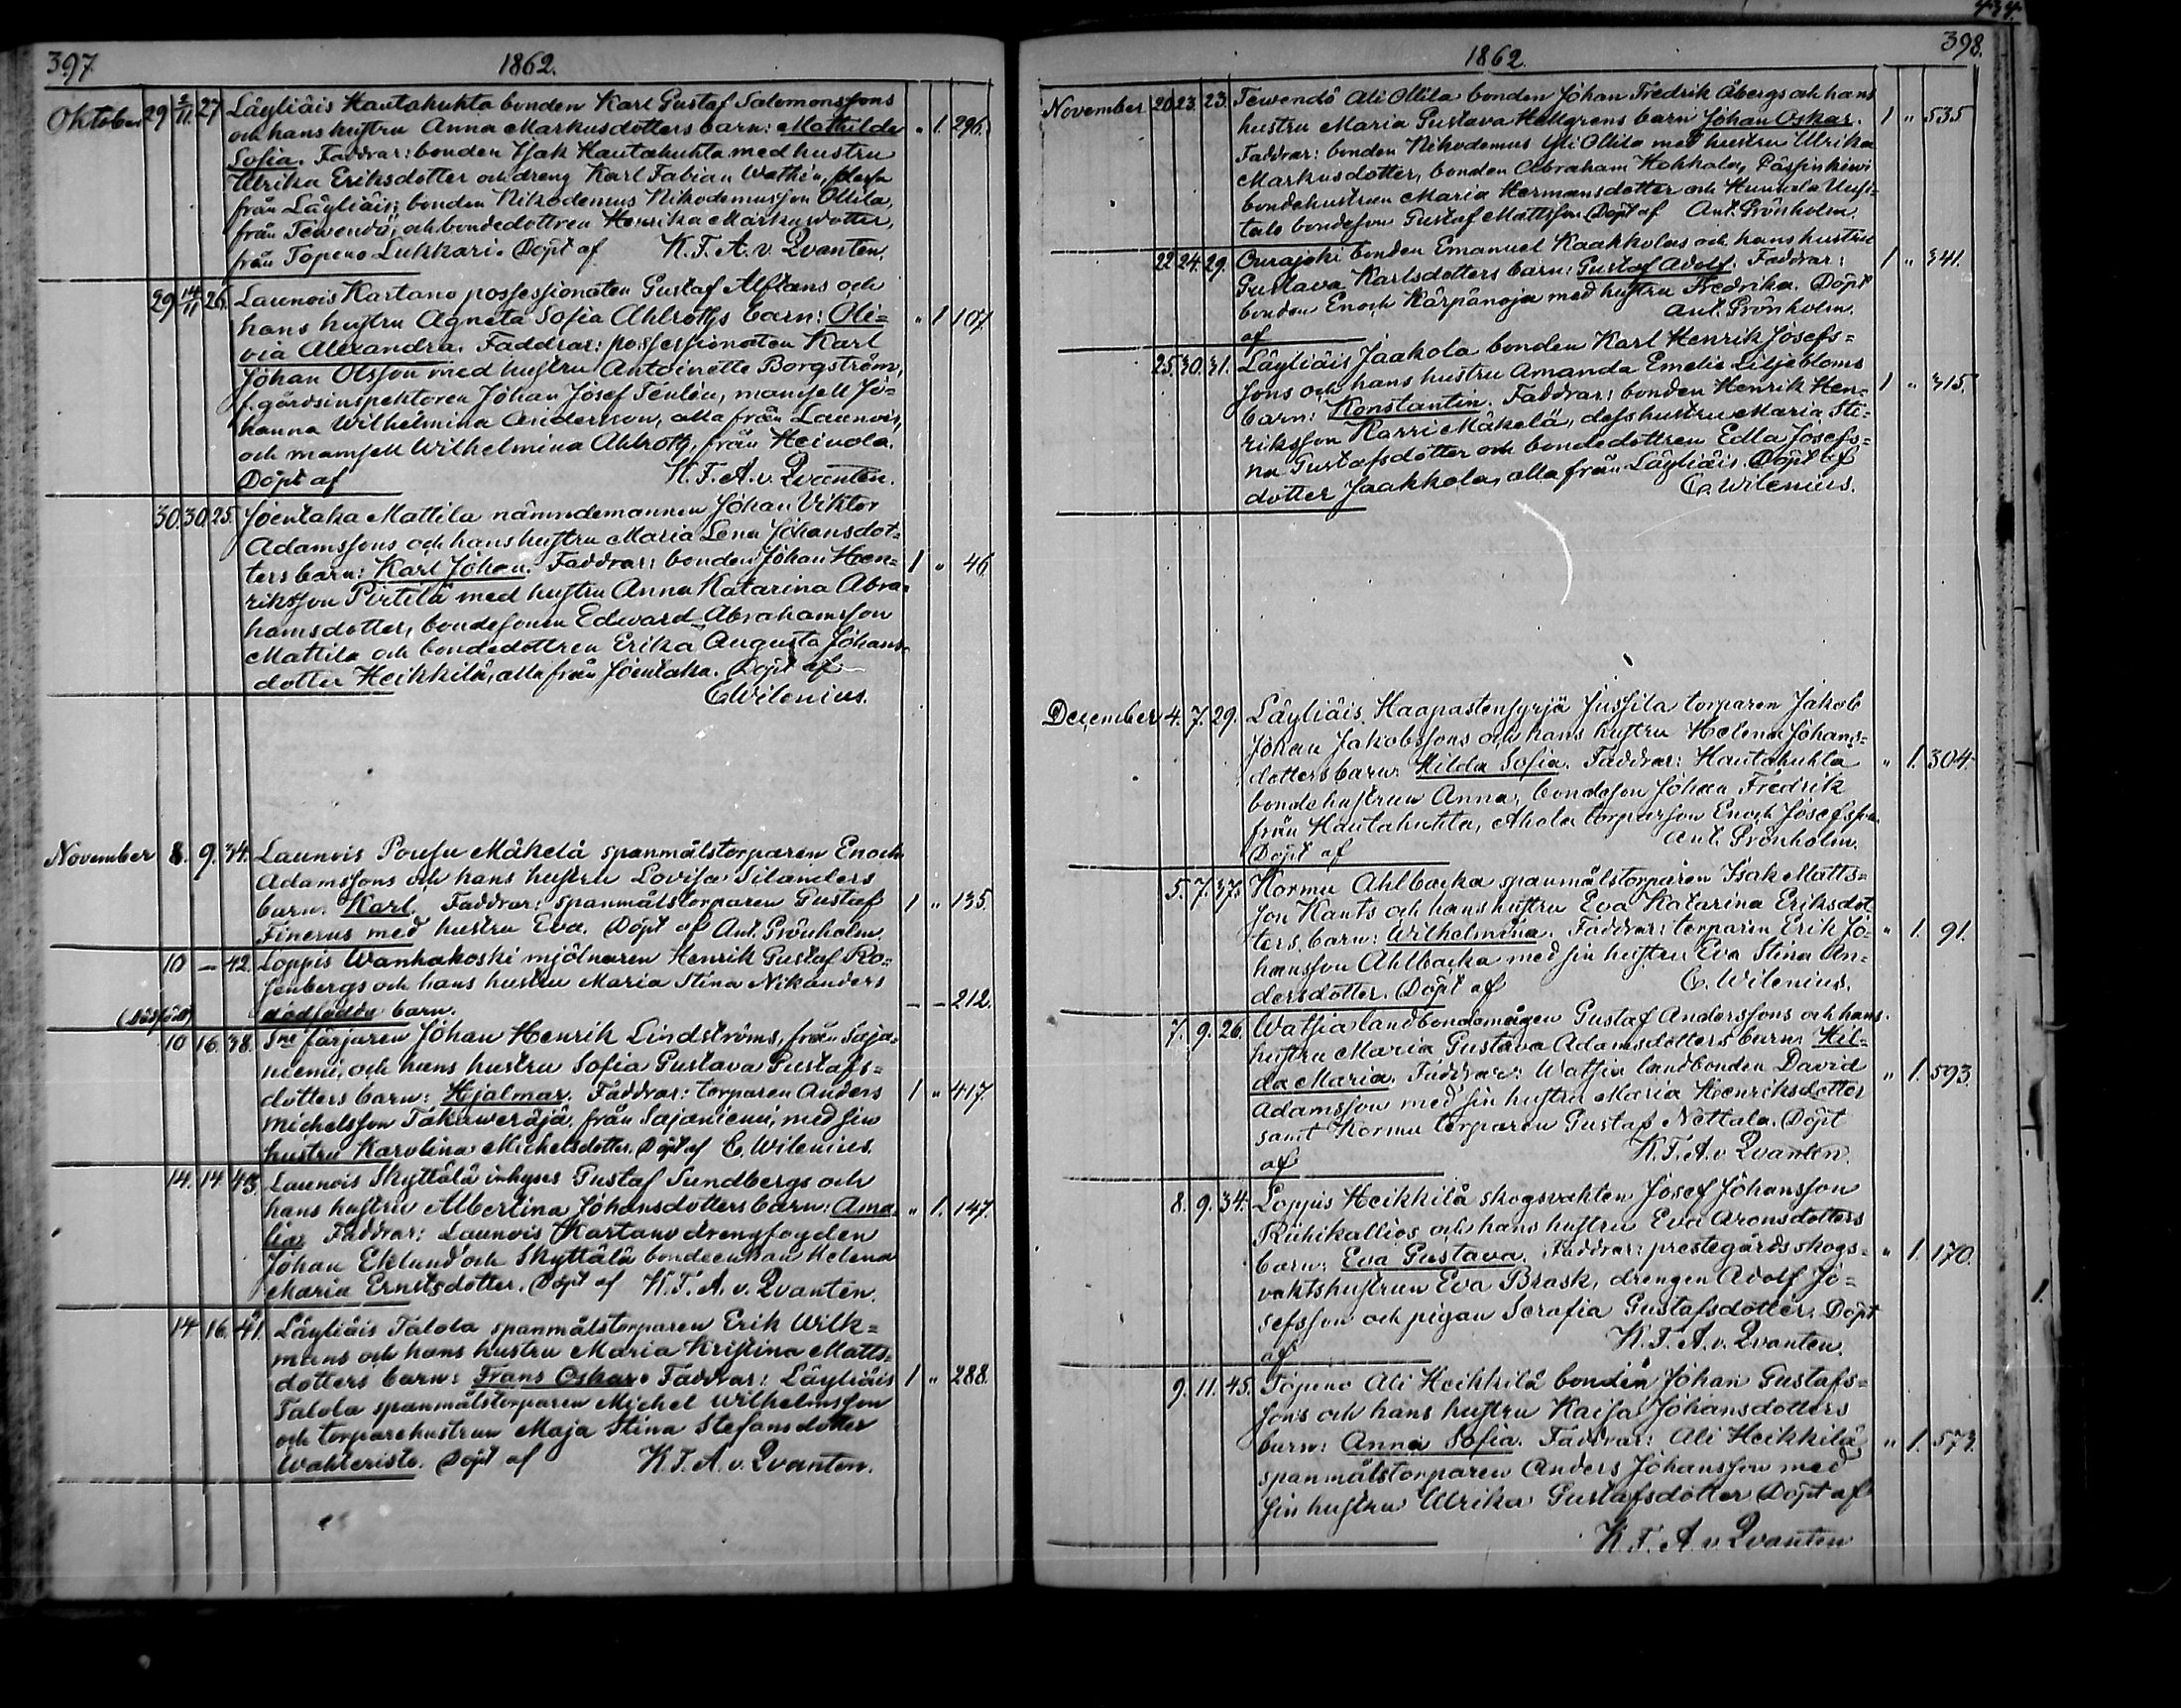 397.
1862.
Oktober 29 2/11 27 Läyliäis Hautakuhta bonden Karl Gustaf Salomonssons
och hans hustru Anna Markusdotters barn: Mathilda " 1. 296.
Sofia. Faddrar: bonden Isak Hautakuhta med hustru
Ulrika Eriksdotter och dreng Karl Fabian Wathén, dessa
från Läyliäis; bonden Nikodemus Nikodemusson Ollila,
från Tewendö, och bondedottren Henrika Markusdotter,
från Topeno Lukkari. Döpt af K. F. A. v. Qvanten.
29 14/11 26. Launois Kartano possessionaten Gustaf Alftans och
hans hustru Agneta Sofia Ahlroths barn: Oli= " 1 107.
via Alexandra. Faddrar: possessionaten Karl
Johan Olsson med hustru Antoinette Borgström,
f. gårdsinspektoren Johan Josef Tenlén, mamsell Jo=
hanna Wilhelmina Andersson, alla från Launois,
och mamsell Wilhelmina Ahlroth, från Heinola.
Döpt af K. F. A. v. Qvanten.
30. 30. 25. Joentaka Mattila nämndemannen Johan Viktor
Adamssons och hans hustru Maria Lena Johansdot=
ters barn: Karl Johan. Faddrar: bonden Johan Hen= 1 " 46.
riksson Pirtilä med hustru Anna Katarina Abra=
hamsdotter, bondesonen Edward Abrahamsson
Mattila och bondedottren Erika Augusta Johans=
dotter Heikkilä, alla från Joentaka. Döpt af
C. Wilenius.
November 8. 9. 34. Launois Pousu Mäkelä spanmålstorparen Enoch
Adamssons och hans hustru Lovisa Silanders
barn: Karl. Faddrar: spanmålstorparen Gustaf 1 " 135.
Finerus med hustru Eva. Döpt af Ant. Grönholm
10 — 42. Loppis Wanhakoski mjölnaren Henrik Gustaf Ro=
senbergs och hans hustru Maria Stina Nikanders
(dödfödt) dödfödda barn. — — 212.
10 16. 38. Sne färjaren Johan Henrik Lindströms, från Saja=
niemi, och hans hustru Sofia Gustava Gustafs=
dotters barn: Hjalmar. Faddrar: torparen Anders 1 " 417.
Michelsson Takaweräjä, från Sajaniemi, med sin
hustru Karolina Michelsdotter. Döpt af C. Wilenius.
14. 14. 43. Launois Skyttälä inhyses Gustaf Sundbergs och
hans hustru Albertina Johansdotters barn: Ama= " 1. 147.
lia. Faddrar: Launois Kartano drengfogden
Johan Eklund och Skyttälä bondeenkan Helena
Maria Ernstsdotter. Döpt af K. F. A. v. Qvanten.
14 16. 41. Läyliäis Talola spanmålstorparen Erik Wilk=
mans och hans hustru Maria Kristina Matts=
dotters barn: Frans Oskar. Faddrar: Läyliäis 1 " 288.
Talola spanmålstorparen Michel Wilhelmsson
och torparehustrun Maja Stina Stefansdotter
Wahteristo. Döpt af K. F. A. v. Qvanten.
434.
1862.
398.
November 20. 23. 23. Tewendö Ali Ollila bonden Johan Fredrik Åbergs och hans
hustru Maria Gustava Hellgrens barn Johan Oskar. 1 " 535
Faddrar: bonden Nikodemus Yli Ollila med hustru Ulrika
Markusdotter, bonden Abraham Hokkala, Pässinkiwi
bondehustrun Maria Hermansdotter och Hunsala Uusi=
talo bondeson Gustaf Mattsson. Döpt af Ant. Grönholm.
22 24. 29. Ourajoki bonden Emanuel Kaakkolas och hans hustru
Gustava Karlsdotters barn: Gustaf Adolf. Faddrar: 1 " 341.
bonden Enoch Kärpänoja med hustru Fredrika. Döpt
af Ant. Grönholm.
25. 30. 31. Läyliäis Jaakola bonden Karl Henrik Josefs=
sons och hans hustru Amanda Emelie Liljebloms 1 " 315.
barn: Konstantin. Faddrar: bonden Henrik Hen=
riksson Karri Mäkelä, dess hustru Maria Sti=
na Gustafsdotter och bondedottren Edla Josefs=
dotter Jaakkola, alla från Läyliäis. Döpt af
C. Wilenius.
December 4. 7. 29. Läyliäis Haapastensyrjä Jussila torparen Jakob
Johan Jakobssons och hans hustru Helena Johans=
dotters barn: Hilda Sofia. Faddrar: Hautakuhta " 1. 304.
bondehustrun Anna, bondeson Johan Fredrik
från Hautakuhta, Ahola torparson Enoch Josefsson.
Döpt af Ant. Grönholm.
5. 7. 37. Kormu Ahlbacka spanmålstorparen Isak Matts=
son Kants och hans hustru Eva Katarina Eriksdot
ters barn: Wilhelmina. Faddrar: torparen Erik Jo= " 1. 91.
hansson Ahlbacka med sin hustru Eva Stina An=
dersdotter. Döpt af C. Wilenius.
7. 9. 26. Watsia landbondemågen Gustaf Anderssons och hans
hustru Maria Gustava Adamsdotters barn: Hil=
da Maria. Faddrar: Watsia landbonden David " 1. 593.
Adamsson med sin hustru Maria Henriksdotter
samt Kormu torparen Gustaf Nettala. Döpt
af K. F. A. v. Qvanten.
8. 9. 34. Loppis Heikkilä skogsvakten Josef Johansson
Riihikallios och hans hustru Eva Aronsdotters
barn: Eva Gustava. Faddrar: prestegårds skogs= " 1. 170.
vaktshustrun Eva Brask, drengen Adolf Jo=
sefsson och pigan Serafia Gustafsdotter. Döpt
af K. F. A. v. Qvanten.
9. 11. 45. Topeno Ali Heikkilä bonden Johan Gustafs=
sons och hans hustru Kaisa Johansdotters
barn: Anna Sofia. Faddrar: Ali Heikkilä " 1. 573.
spanmålstorparen Anders Johansson med
sin hustru Ulrika Gustafsdotter. Döpt af
K. F. A. v. Qvanten